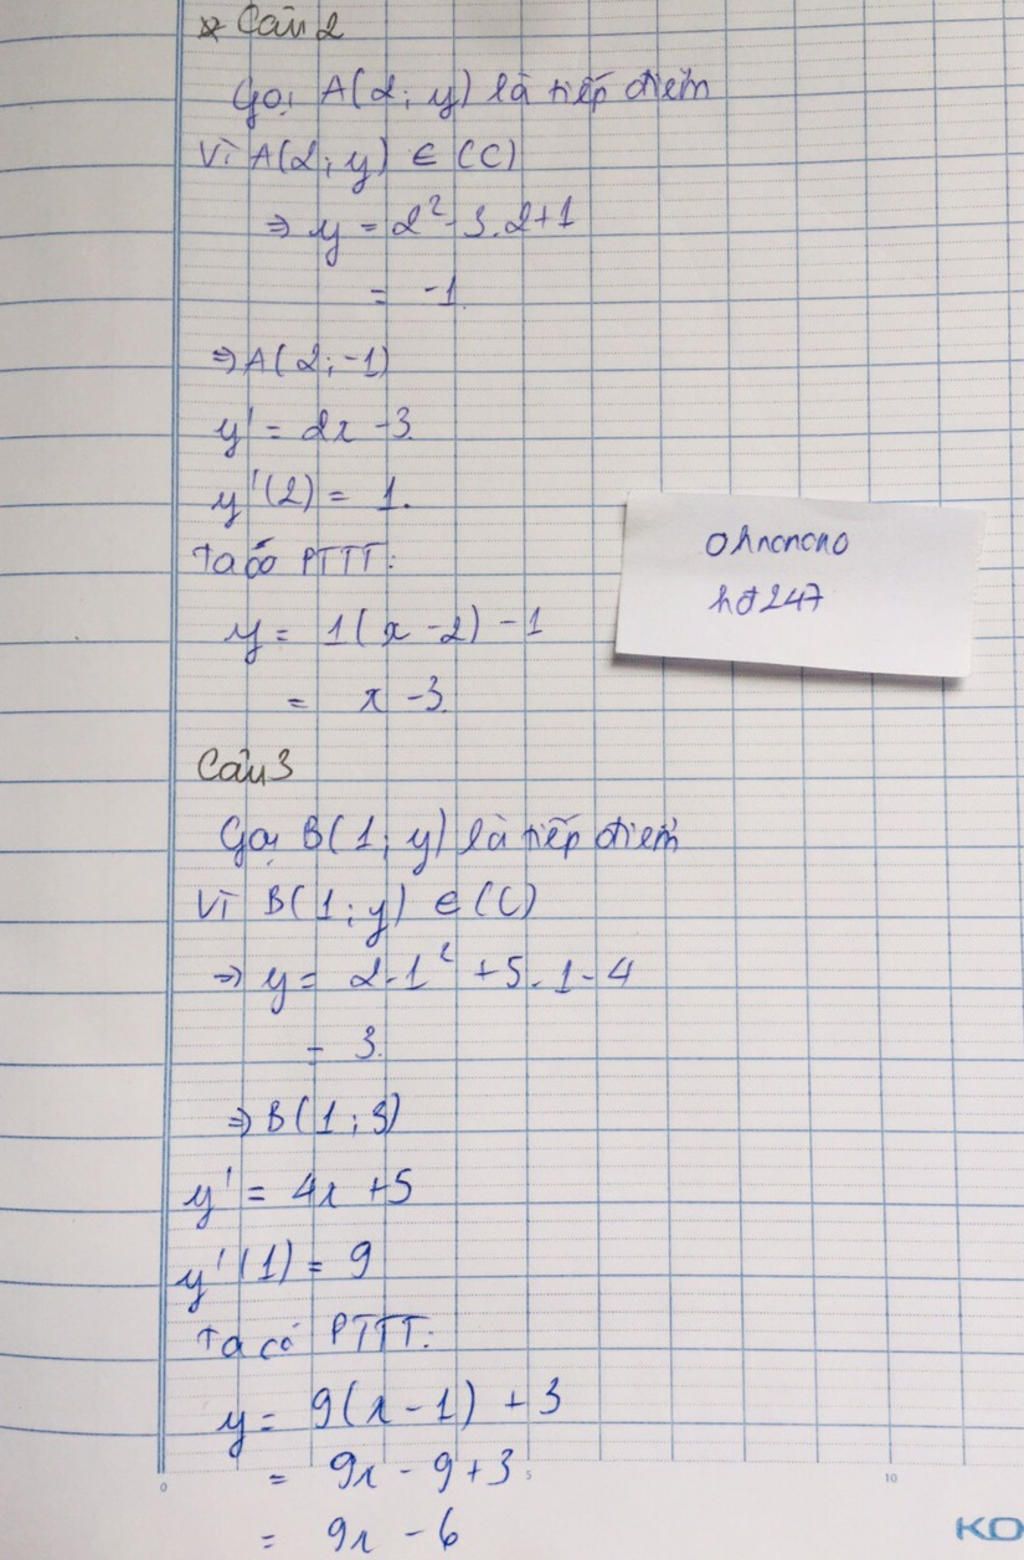 * Câu 2
Gọi A(2; y) là tiếp điểm
Vì A(2; y) ∈ (C)
⇒ y = 2² - 3.2+1
= -1.
⇒ A(2; -1)
y' = 2x - 3.
y'(2) = 1.
Ta có PTTT:
y = 1(x - 2) - 1
= x - 3.
Ohnonono
hđ247
Câu 3
Gọi B(1; y) là tiếp điểm
Vì B(1; y) ∈ (C)
⇒ y = 2.1² + 5.1 - 4
= 3.
⇒ B(1; 3)
y' = 4x + 5
y'(1) = 9
Ta có PTTT:
y = 9(x - 1) + 3
= 9x - 9 + 3
= 9x - 6
0 5 10
KO